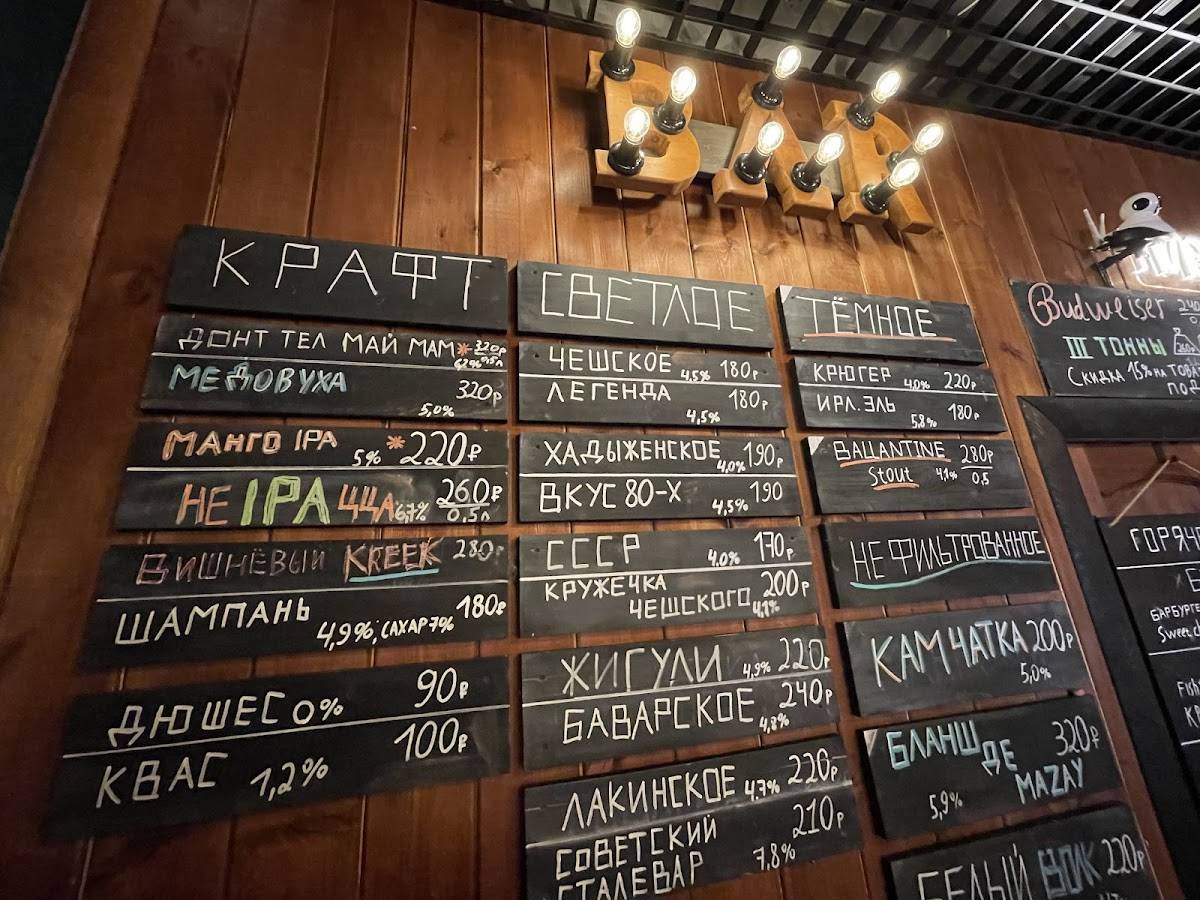 БАР
КРАФТ
ДОНТ ТЕЛ МАЙ МАМ* 320р
6,2% 0,45л
МЕДОВУХА 320р
5,0%
МАНГО IPA 5% *220₽
НЕ IPA ЦЦА 6,7% 260₽
0,5л
ВИШНЁВЫЙ KREEK 280р
ШАМПАНЬ 180₽
4,9%, САХАР 7%
ДЮШЕС 0% 90₽
КВАС 1,2% 100₽
СВЕТЛОЕ
ЧЕШСКОЕ 4,5% 180р
ЛЕГЕНДА 180р
4,5%
ХАДЫЖЕНСКОЕ 4,0% 190р
ВКУС 80-Х 4,5% 190
СССР 4.0% 170р
КРУЖЕЧКА
ЧЕШСКОГО 4,1% 200р
ЖИГУЛИ 4,9% 220р
БАВАРСКОЕ 4,8% 240р
ЛАКИНСКОЕ 4.7% 220р
СОВЕТСКИЙ 210р
СТАЛЕВАР 7,8%
ТЁМНОЕ
КРЮГЕР 4.0% 220р
ИРЛ. ЭЛЬ 5,8% 180р
BALLANTINE 280р
Stout 4,1% 0,5
НЕФИЛЬТРОВАННОЕ
КАМЧАТКА 200₽
5,0%
БЛАНШ ДЕ 320₽
5,9% MAZAY
БЕЛЫЙ ВОЛК 220р
Budweiser 240
III ТОННЫ
СКИДКА 15% НА ТОВА
ПО
ГОРЯЧЕ
БАРБУРГЕ
Sweet